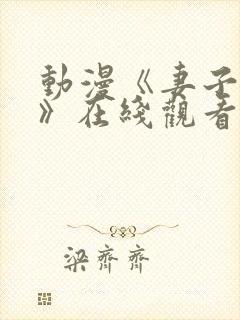 動漫《妻子
》在綫觀看
梁齊齊